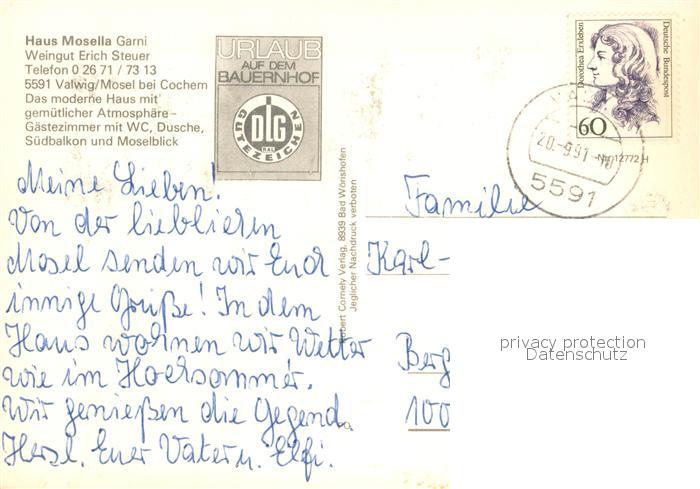 Haus Mosella Garni
Weingut Erich Steuer
Telefon 0 26 71 / 73 13
5591 Valwig/Mosel bei Cochem
Das moderne Haus mit
gemütlicher Atmosphäre -
Gästezimmer mit WC, Dusche,
Südbalkon und Moselblick
URLAUB
AUF DEM
BAUERNHOF
DLG
GÜTEZEICHEN
Dorothea Erxleben
Deutsche Bundespost
60
20.-9.91
5591
Robert Cornely Verlag, 8939 Bad Wörishofen
Jeglicher Nachdruck verboten
Meine Lieben!
Von der lieblichen
Mosel senden wir Euch
innige Grüße! In dem
Haus wohnen wir Wetter
wie im Hochsommer.
Wir genießen die Gegend.
Herzl. Euer Vater u. Elfi.
Familie
Karl-
Berg
100
privacy protection
Datenschutz